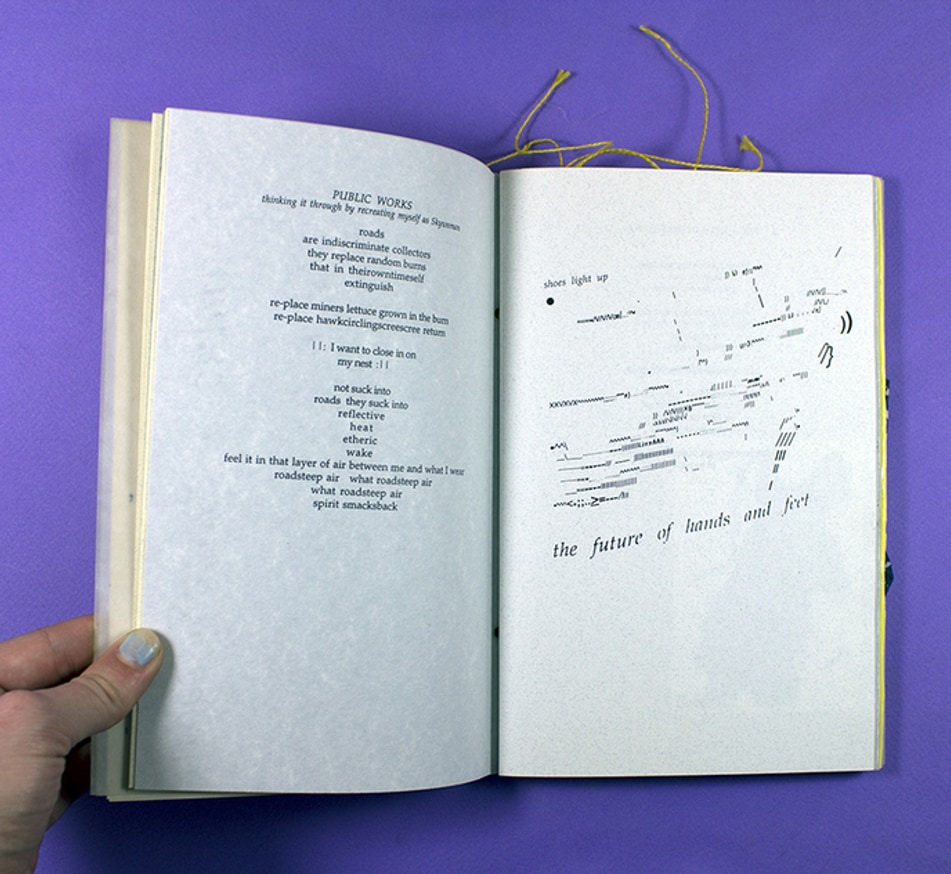 PUBLIC WORKS
thinking it through by recreating myself as Skywoman
roads
are indiscriminate collectors
they replace random burns
that in theirowntimeself
extinguish
re-place miners lettuce grown in the burn
re-place hawkcirclingscreescree return
||: I want to close in on
my nest :||
not suck into
roads they suck into
reflective
heat
etheric
wake
feel it in that layer of air between me and what I wear
roadsteep air what roadsteep air
what roadsteep air
spirit smacksback
shoes light up
the future of hands and feet